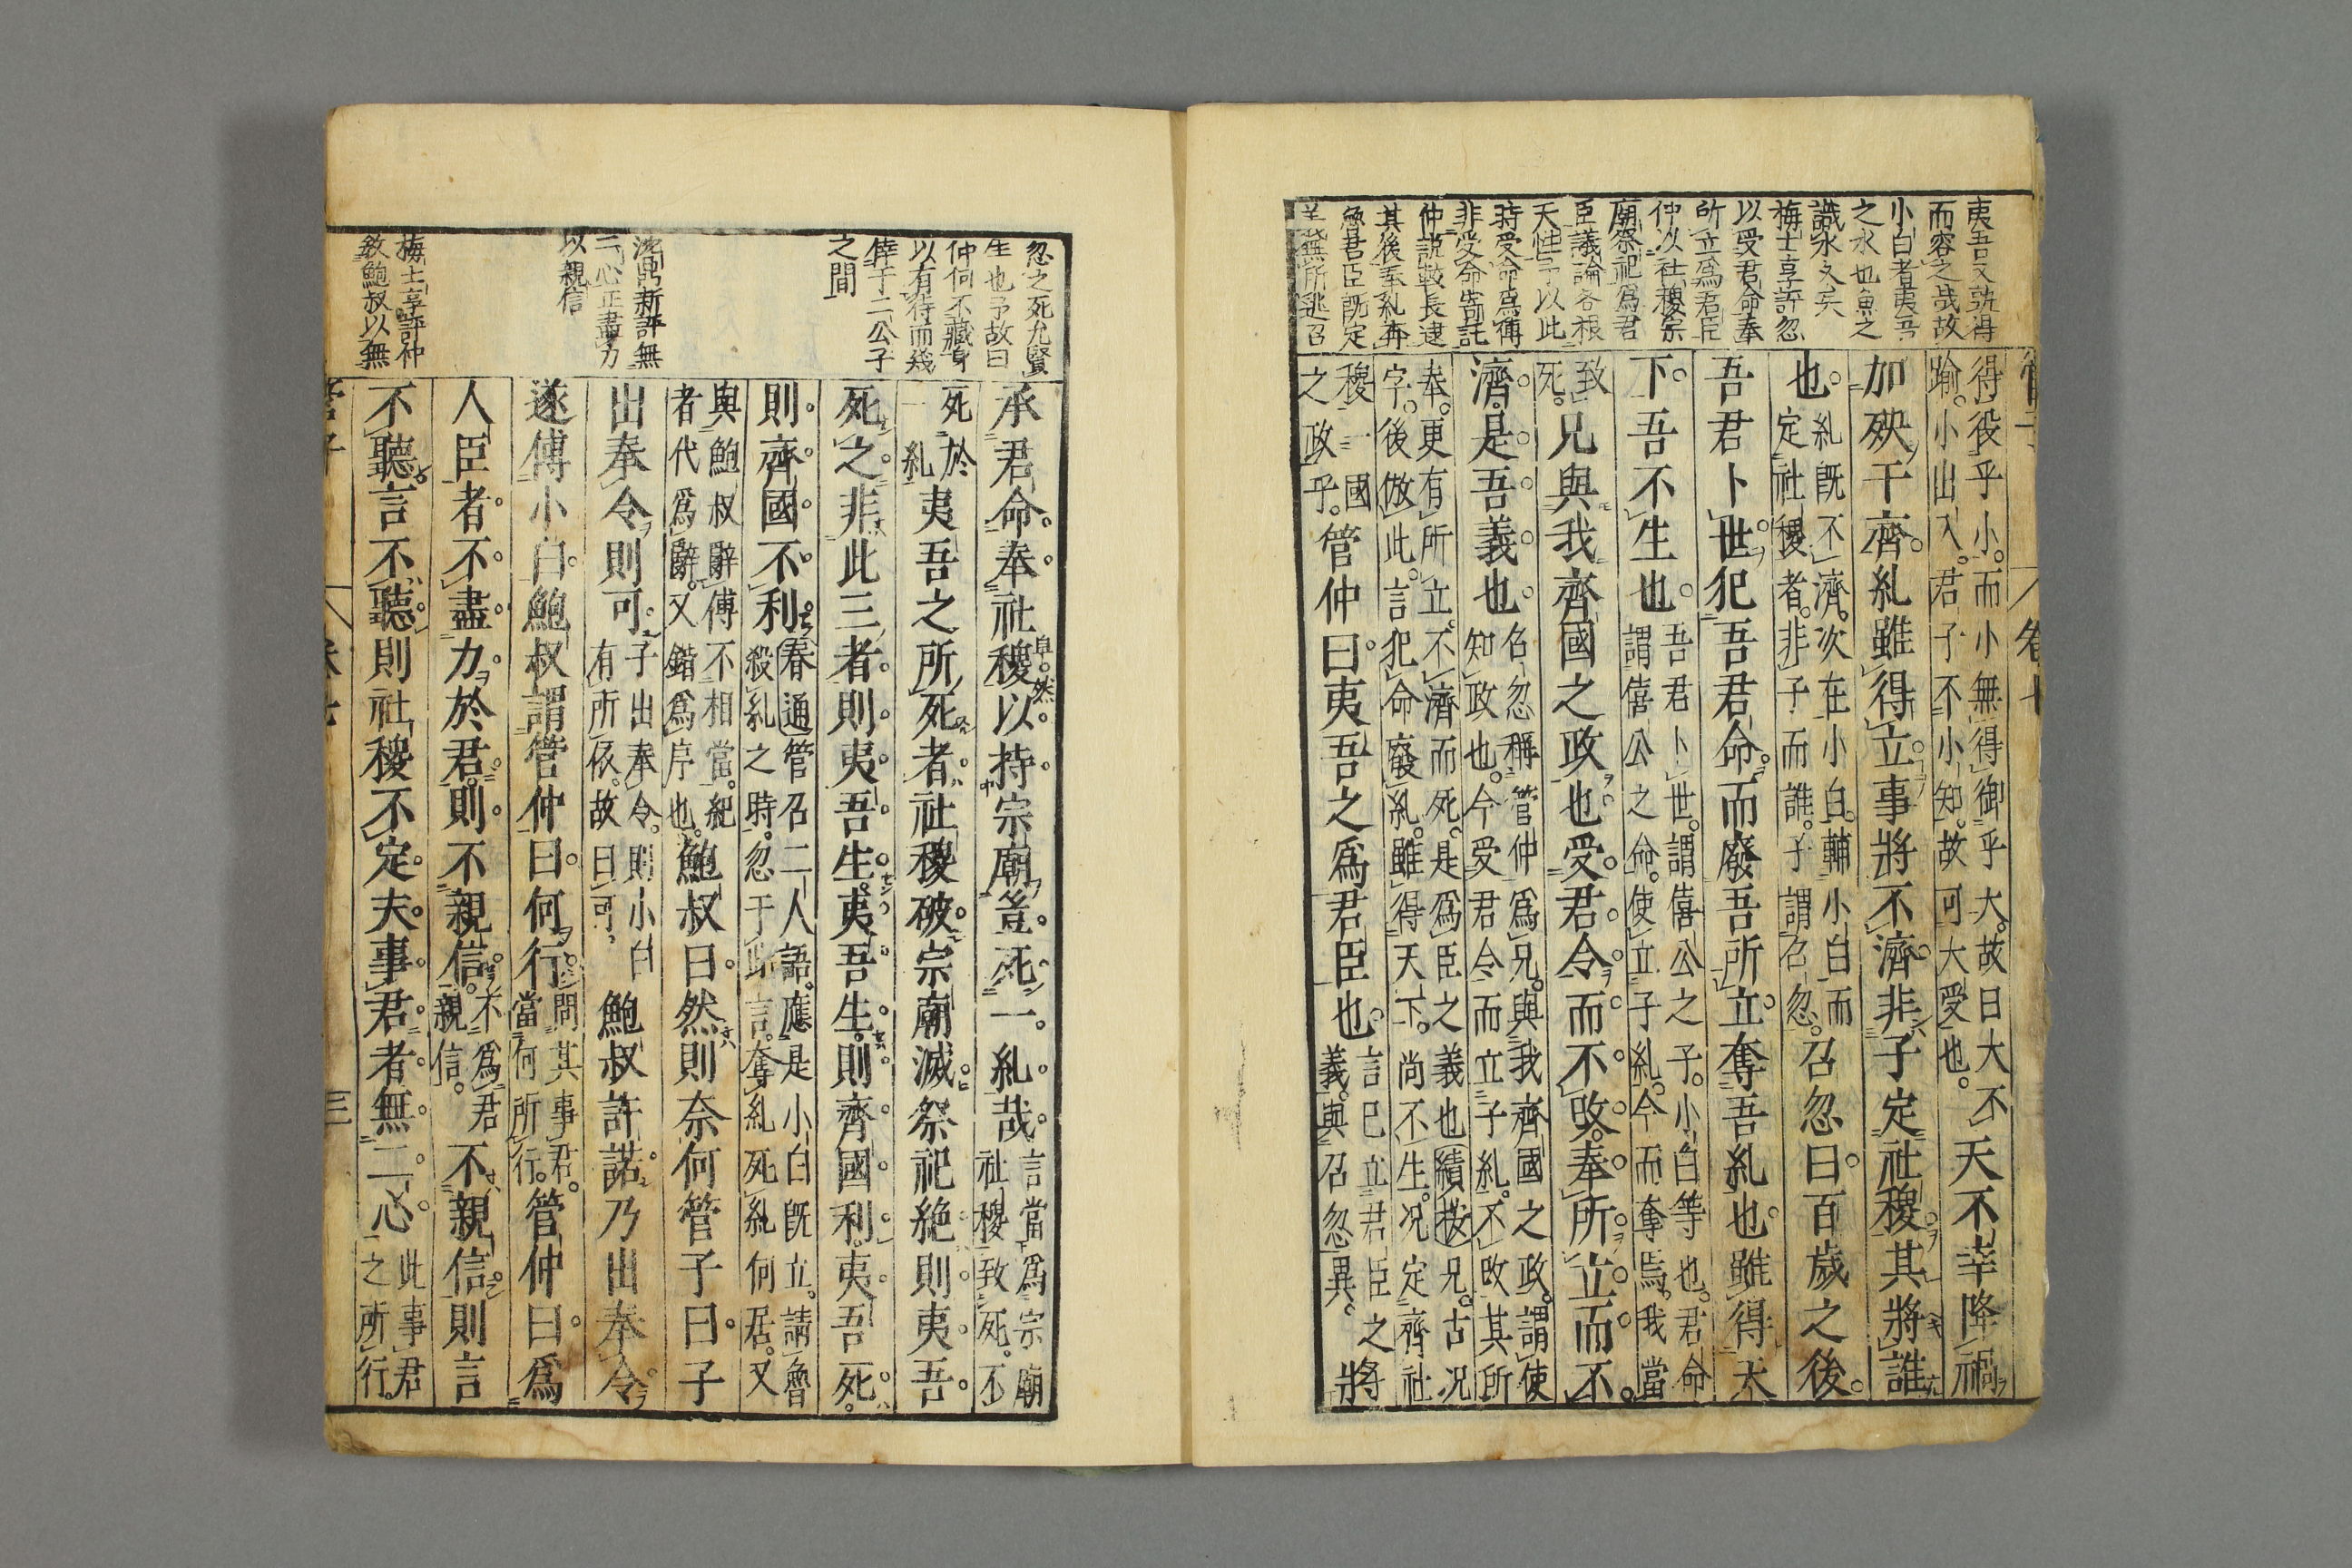 夷吾又孰得
而容之哉故
小白者夷吾
之水也魚之
識水久矣
梅士享評忽
以受君命奉
所立爲君臣
仲以社稷宗
廟祭祀爲君
臣議論各根
天性予以此
時受命爲傅
非受命寄託
仲説較長逮
其後奉糺再
無君臣既定
義無所逃召
管子 卷七
得役乎小。而小無得御乎大。故曰大不
踰。小出入。君子不小知。故可大受也。天不幸降禍
加殃于齊。糺雖得立。事將不濟。非子定社稷。其將誰
也。糺既不濟。次在小白。輔小白而
定社稷者。非子而誰。子謂召忽。召忽曰。百歲之後。
吾君卜世。犯吾君命。而廢吾所立。奪吾糺也。雖得天
下。吾不生也。吾君卜世。謂僖公之子。小白等也。君命
謂僖公之命。使立子糺。今而奪焉。我當
致
死。兄與我齊國之政也。受君令而不改。奉所立而不
濟。是吾義也。名忽稱管仲爲兄。與我齊國之政。謂使
知政也。今受君令而立子糺。不改其所
奉。更有所立。不濟而死。是爲臣之義也續按兄。古况
字。後倣此。言犯命廢糺。雖得天下。尚不生。况定齊社
稷一國
之政乎。管仲曰。夷吾之爲君臣也。言已立君臣之
義。與召忽異。將
忽之死允賢
生也予故曰
仲何不藏身
以有待而幾
倖于二公子
之間
沈鼎新評無
二心正盡力
以親信
梅士享評仲
敎鮑叔以無
承君命。奉社稷以持宗廟。豈死一糺哉。言當爲宗廟
社稷致死。不
死於
一糺夷吾之所死者。社稷破。宗廟滅。祭祀絶。則夷吾
死之。非此三者。則夷吾生。夷吾生。則齊國利。夷吾死。
則齊國不利。春通管召二人語。應是小白既立。請魯
殺糺之時。忽于此言。奪糺死糺何居。又
與鮑叔辭傅不相當。紀
者代爲辭。又錯爲序也。鮑叔曰。然則奈何。管子曰。子
出奉令則可。子出奉令。則小白
有所依。故曰可。鮑叔許諾。乃出奉令。
遂傅小白。鮑叔謂管仲曰。何行。問其事君。
當何所行。管仲曰。爲
人臣者。不盡力於君。則不親信。不爲君
親信。不親信。則言
不聽。言不聽。則社稷不定。夫事君者無二心。此事君
之所行。
管子 卷七 三